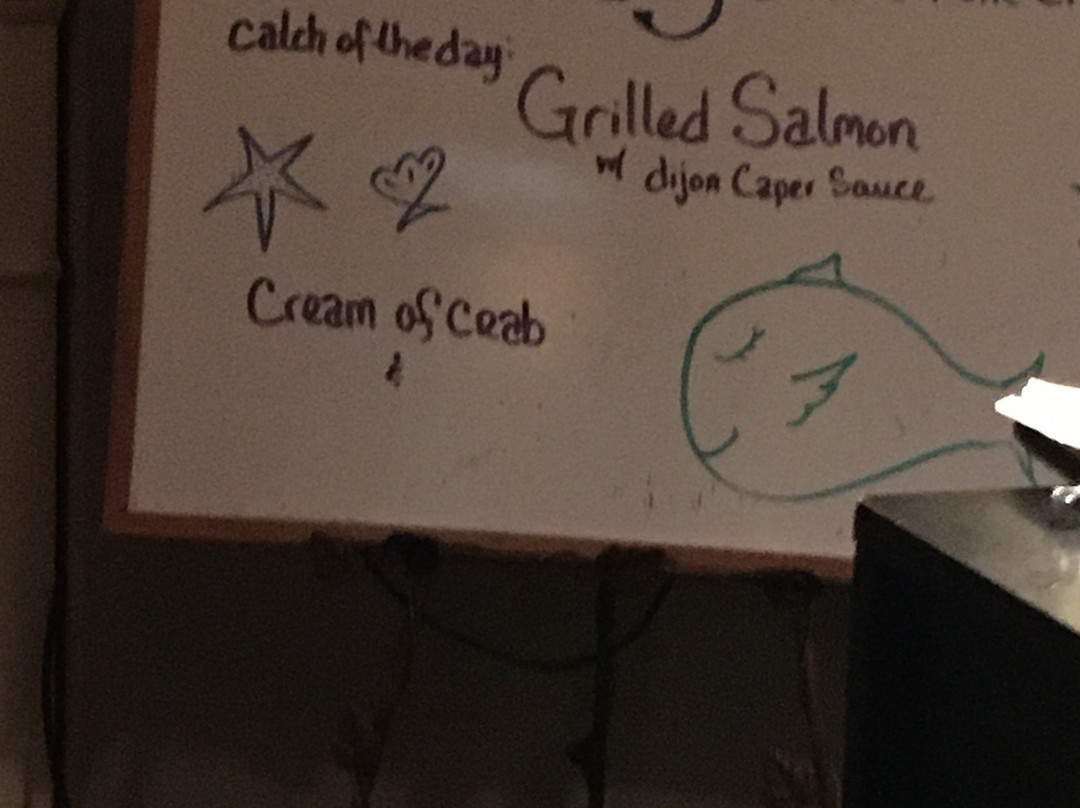 Catch of the day:
Grilled Salmon
w/ dijon Caper Sauce
Cream of Crab